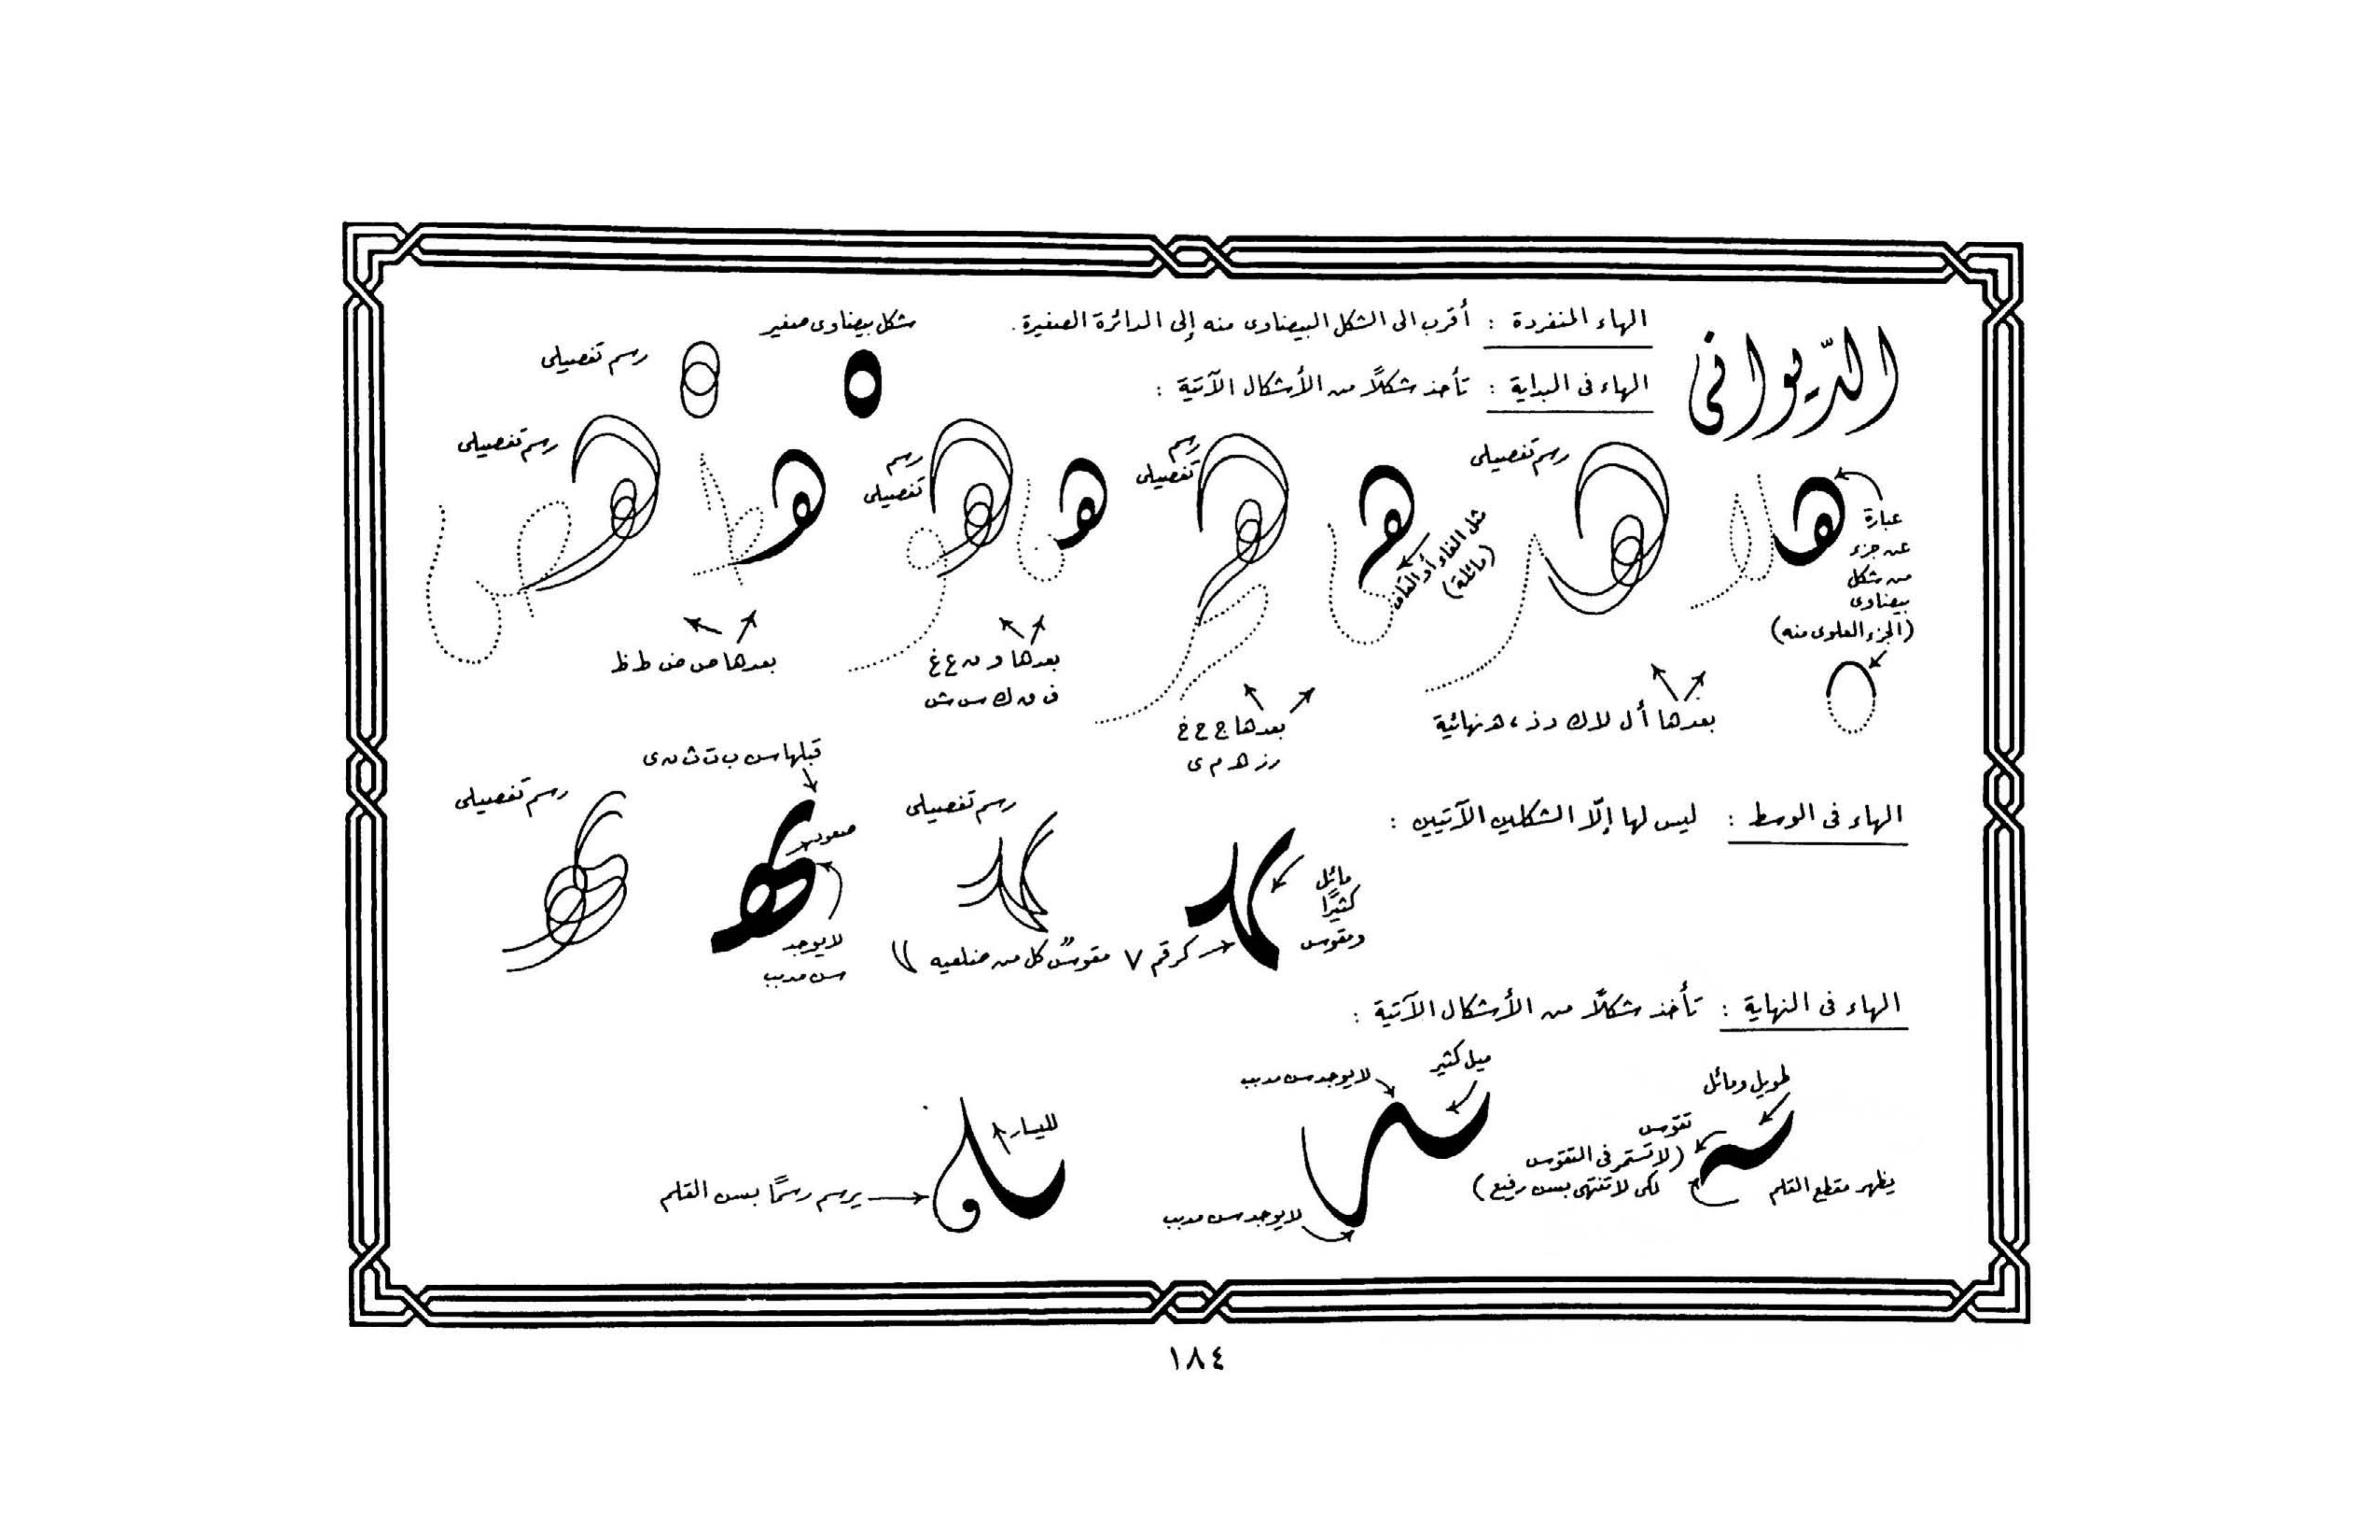 الديواني
الهاء المنفردة : أقرب الى الشكل البيضاوى منه إلى الدائرة الصغيرة .
شكل بيضاوى صغير
رسم تفصيلى
الهاء فى البداية : تأخذ شكلاً من الأشكال الآتية :
عبارة
عن جزء
من شكل
بيضاوى
(الجزء العلوى منه)
رسم تفصيلى
بعدها أ ل لا ك د ذ ، ه نهائية
مثل الفاء أو القاف
(مائلة)
رسم
تفصيلى
بعدها ج ح خ
ر ز ه م ى
رسم
تفصيلى
بعدها و ن ع غ
ف ق ك س ش
رسم تفصيلى
بعدها ص ض ط ظ
الهاء فى الوسط : ليس لها إلّا الشكلين الآتيين :
مائل
كثيرًا
ومقوس
كرقم ٧ مقوسٌ كل من ضلعيه
رسم تفصيلى
قبلها س ب ت ث ن ى
صعود
لا يوجد
سن مدبب
رسم تفصيلى
الهاء فى النهاية : تأخذ شكلًا من الأشكال الآتية :
طويل ومائل
تقوس
(لا تستمر فى التقوس
لكى لا تنتهى بسن رفيع)
يظهر مقطع القلم
ميل كثير
لا يوجد سن مدبب
لا يوجد سن مدبب
لليسار
يرسم رسمًا بسن القلم
١٨٤